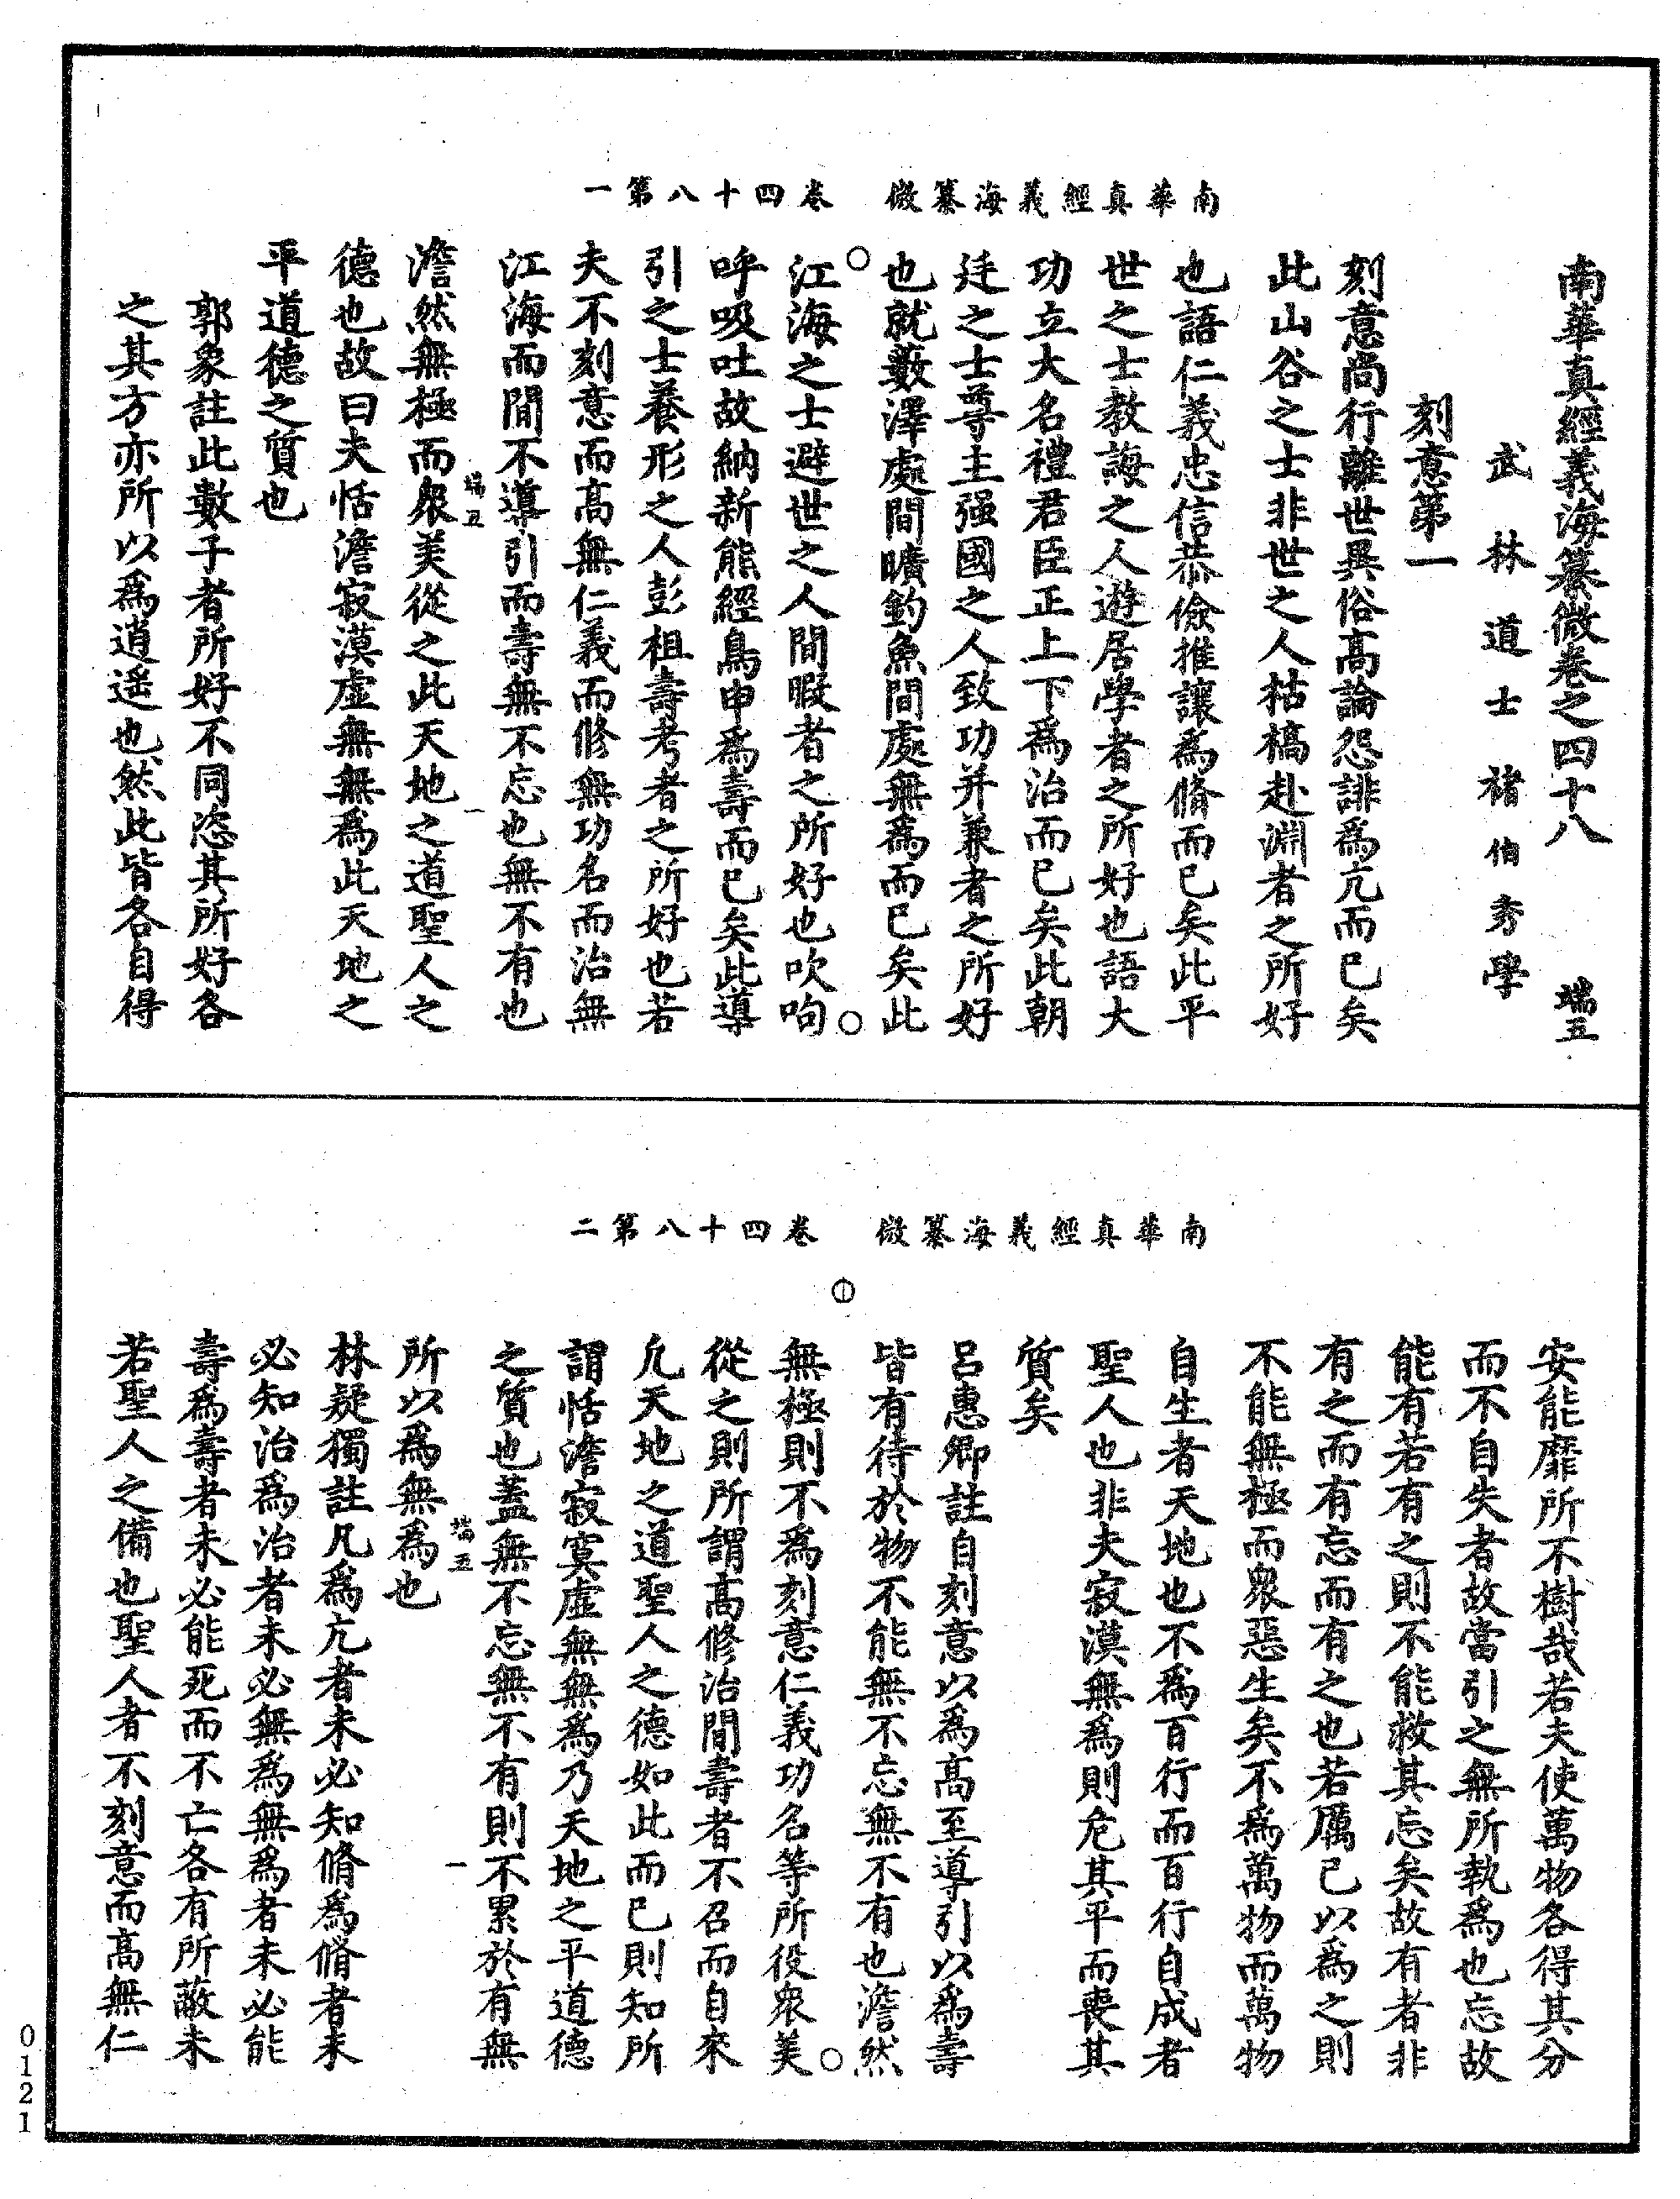 南華真經義海纂微　卷四十八第一
南華真經義海纂微卷之四十八　端五
武林道士褚伯秀學
刻意第一
刻意尚行離世異俗高論怨誹爲亢而已矣
此山谷之士非世之人枯槁赴淵者之所好
也語仁義忠信恭儉推讓爲脩而已矣此平
世之士教誨之人遊居學者之所好也語大
功立大名禮君臣正上下爲治而已矣此朝
廷之士尊主强國之人致功并兼者之所好
也就藪澤處間曠釣魚間處無爲而已矣此
江海之士避世之人間暇者之所好也吹呴
呼吸吐故納新熊經鳥申爲壽而已矣此導
引之士養形之人彭祖壽考者之所好也若
夫不刻意而高無仁義而修無功名而治無
江海而間不導引而壽無不忘也無不有也
端五　一
澹然無極而衆美從之此天地之道聖人之
德也故曰夫恬澹寂漠虛無無爲此天地之
平道德之質也
郭象註此數子者所好不同恣其所好各
之其方亦所以爲逍遥也然此皆各自得
南華真經義海纂微　卷四十八第二
安能靡所不樹哉若夫使萬物各得其分
而不自失者故當引之無所執爲也忘故
能有若有之則不能救其忘矣故有者非
有之而有忘而有之也若厲已以爲之則
不能無極而衆惡生矣不爲萬物而萬物
自生者天地也不爲百行而百行自成者
聖人也非夫寂漠無爲則危其平而喪其
質矣
呂惠卿註自刻意以爲高至導引以爲壽
皆有待於物不能無不忘無不有也澹然
無極則不爲刻意仁義功名等所役衆美
從之則所謂高修治間壽者不召而自來
凣天地之道聖人之德如此而已則知所
謂恬澹寂寞虛無無爲乃天地之平道德
之質也蓋無不忘無不有則不累於有無
端五　一
所以爲無爲也
林疑獨註凡爲亢者未必知脩爲脩者未
必知治爲治者未必無爲無爲者未必能
壽爲壽者未必能死而不亡各有所蔽未
若聖人之備也聖人者不刻意而高無仁
0121